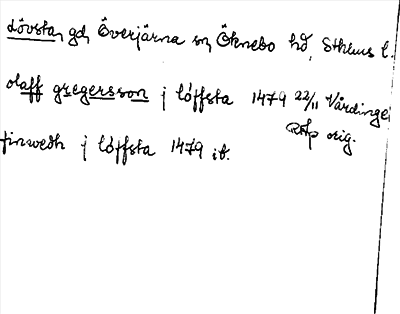 Lövsta, gd, Överjärna sn, Öknebo hd, Sthlms l.
olaff gregersson j lôffsta 1479 22/11 Vårdinge
RAp orig.
finwedh j lôffsta 1479 ib.